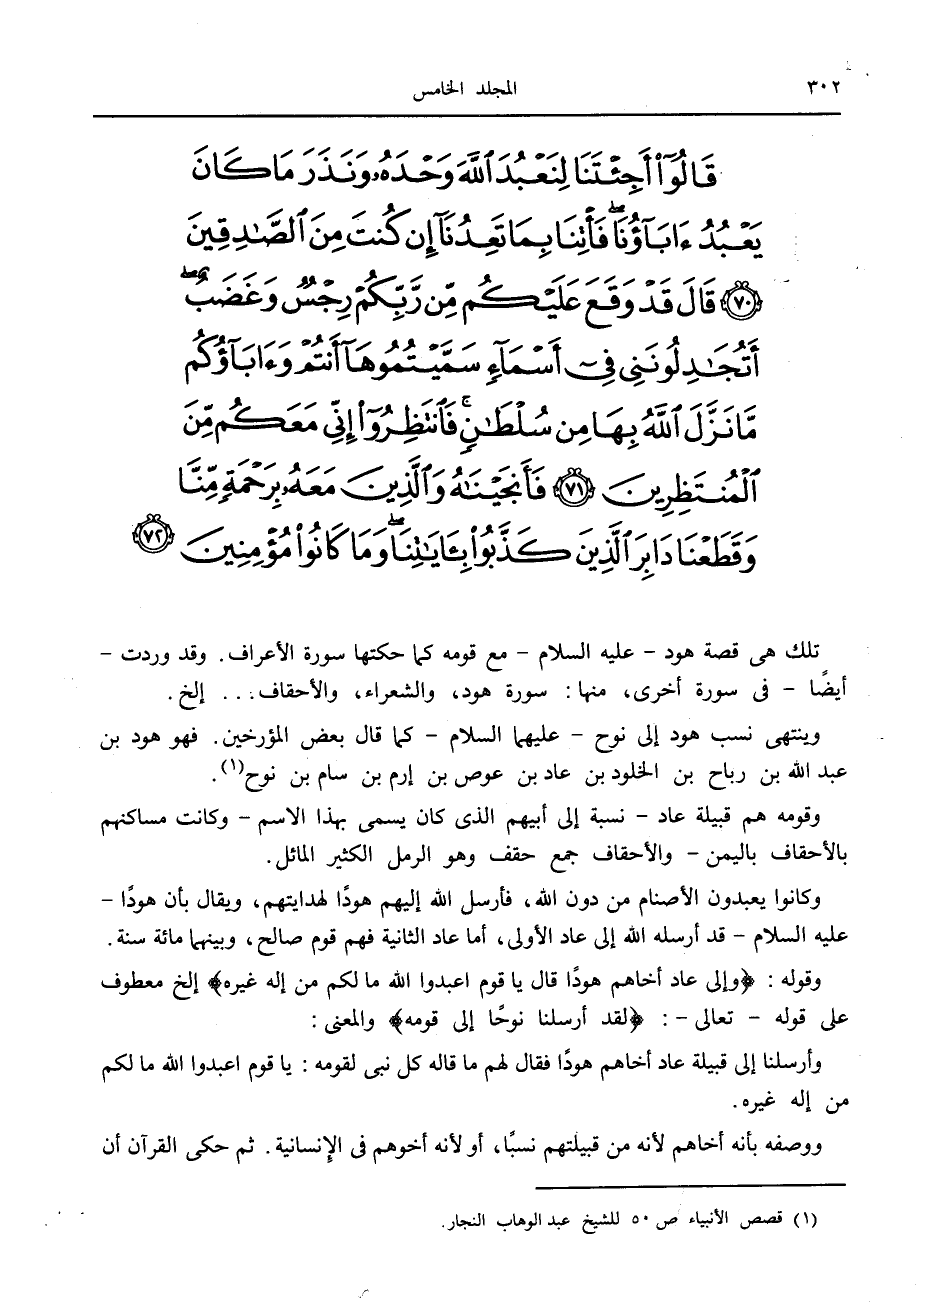 ٣٠٢
المجلد الخامس
قَالُوٓا۟ أَجِئْتَنَا لِنَعْبُدَ ٱللَّهَ وَحْدَهُۥ وَنَذَرَ مَا كَانَ
يَعْبُدُ ءَابَآؤُنَاۖ فَأْتِنَا بِمَا تَعِدُنَآ إِن كُنتَ مِنَ ٱلصَّـٰدِقِينَ
﴿٧٠﴾ قَالَ قَدْ وَقَعَ عَلَيْكُم مِّن رَّبِّكُمْ رِجْسٌ وَغَضَبٌۖ
أَتُجَـٰدِلُونَنِى فِىٓ أَسْمَآءٍ سَمَّيْتُمُوهَآ أَنتُمْ وَءَابَآؤُكُم
مَّا نَزَّلَ ٱللَّهُ بِهَا مِن سُلْطَـٰنٍۚ فَٱنتَظِرُوٓا۟ إِنِّى مَعَكُم مِّنَ
ٱلْمُنتَظِرِينَ ﴿٧١﴾ فَأَنجَيْنَـٰهُ وَٱلَّذِينَ مَعَهُۥ بِرَحْمَةٍ مِّنَّا
وَقَطَعْنَا دَابِرَ ٱلَّذِينَ كَذَّبُوا۟ بِـَٔايَـٰتِنَاۖ وَمَا كَانُوا۟ مُؤْمِنِينَ ﴿٧٢﴾
تلك هى قصة هود - عليه السلام - مع قومه كما حكتها سورة الأعراف. وقد وردت -
أيضًا - فى سورة أخرى، منها: سورة هود، والشعراء، والأحقاف... إلخ.
وينتهى نسب هود إلى نوح - عليهما السلام - كما قال بعض المؤرخين. فهو هود بن
عبد الله بن رباح بن الخلود بن عاد بن عوص بن إرم بن سام بن نوح(١).
وقومه هم قبيلة عاد - نسبة إلى أبيهم الذى كان يسمى بهذا الاسم - وكانت مساكنهم
بالأحقاف باليمن - والأحقاف جمع حقف وهو الرمل الكثير المائل.
وكانوا يعبدون الأصنام من دون الله، فأرسل الله إليهم هودًا لهدايتهم، ويقال بأن هودًا -
عليه السلام - قد أرسله الله إلى عاد الأولى، أما عاد الثانية فهم قوم صالح، وبينهما مائة سنة.
وقوله: ﴿وإلى عاد أخاهم هودًا قال يا قوم اعبدوا الله ما لكم من إله غيره﴾ إلخ معطوف
على قوله - تعالى -: ﴿لقد أرسلنا نوحًا إلى قومه﴾ والمعنى:
وأرسلنا إلى قبيلة عاد أخاهم هودًا فقال لهم ما قاله كل نبى لقومه: يا قوم اعبدوا الله ما لكم
من إله غيره.
ووصفه بأنه أخاهم لأنه من قبيلتهم نسبًا، أو لأنه أخوهم فى الإنسانية. ثم حكى القرآن أن
(١) قصص الأنبياء ص ٥٠ للشيخ عبد الوهاب النجار.